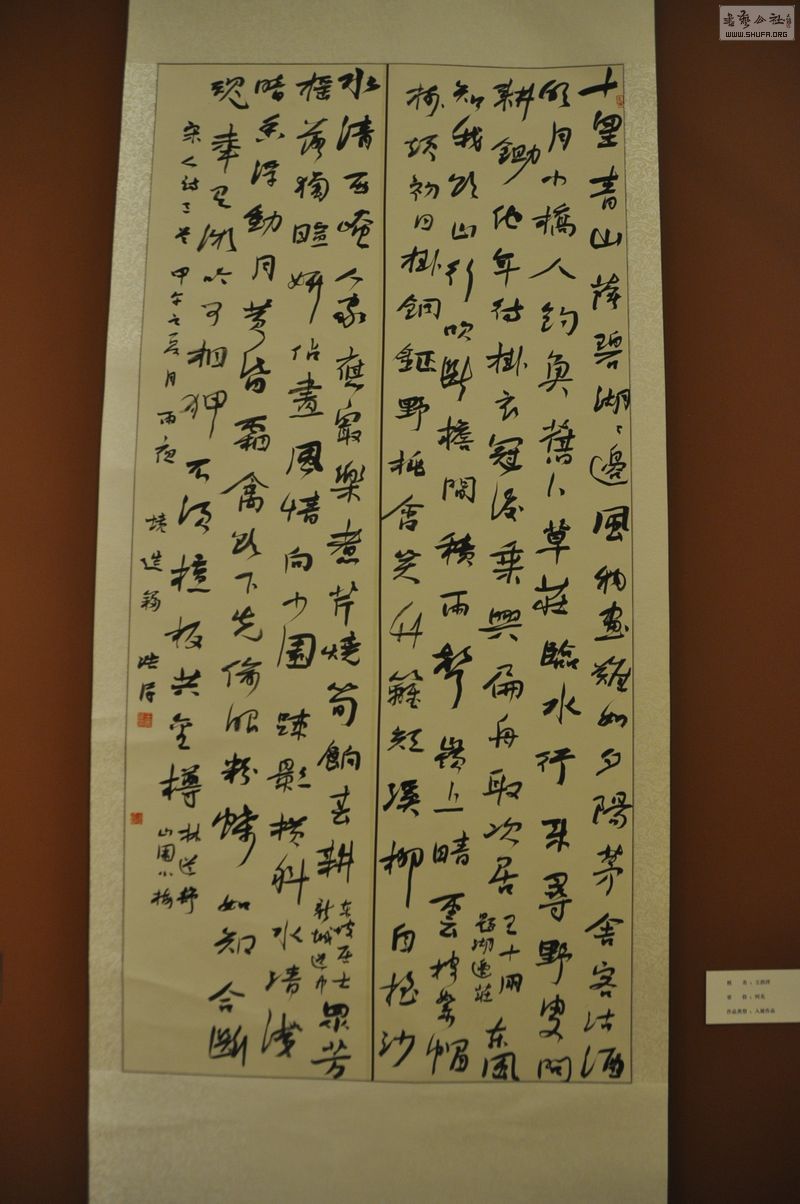 十里青山蔭碧湖、邊風物畫難如夕陽茅舍客沽酒
明月小橋人釣魚舊卜草莊臨水竹來尋野叟問
耕鋤他年待掛衣冠後乘興扁舟取次居 王十朋題湖邊莊 東風
知我欲山行吹斷檐間積雨聲嶺上晴雲披絮帽
樹頭初日掛銅鉦野桃含笑竹籬短溪柳自搖沙
水清西崦人家應最樂煮芹燒筍餉春耕 東坡居士新城道中 眾芳
搖落獨暄妍佔盡風情向小園疎影橫斜水清淺
暗香浮動月黃昏霜禽欲下先偷眼粉蝶如知合斷
魂幸有微吟可相狎不須檀板共金樽 林逋詩山園小梅
宋人詩三首 甲午之夏月雨夜
姓 名：
作品类别：入展作品
WWW.SHUFA.ORG